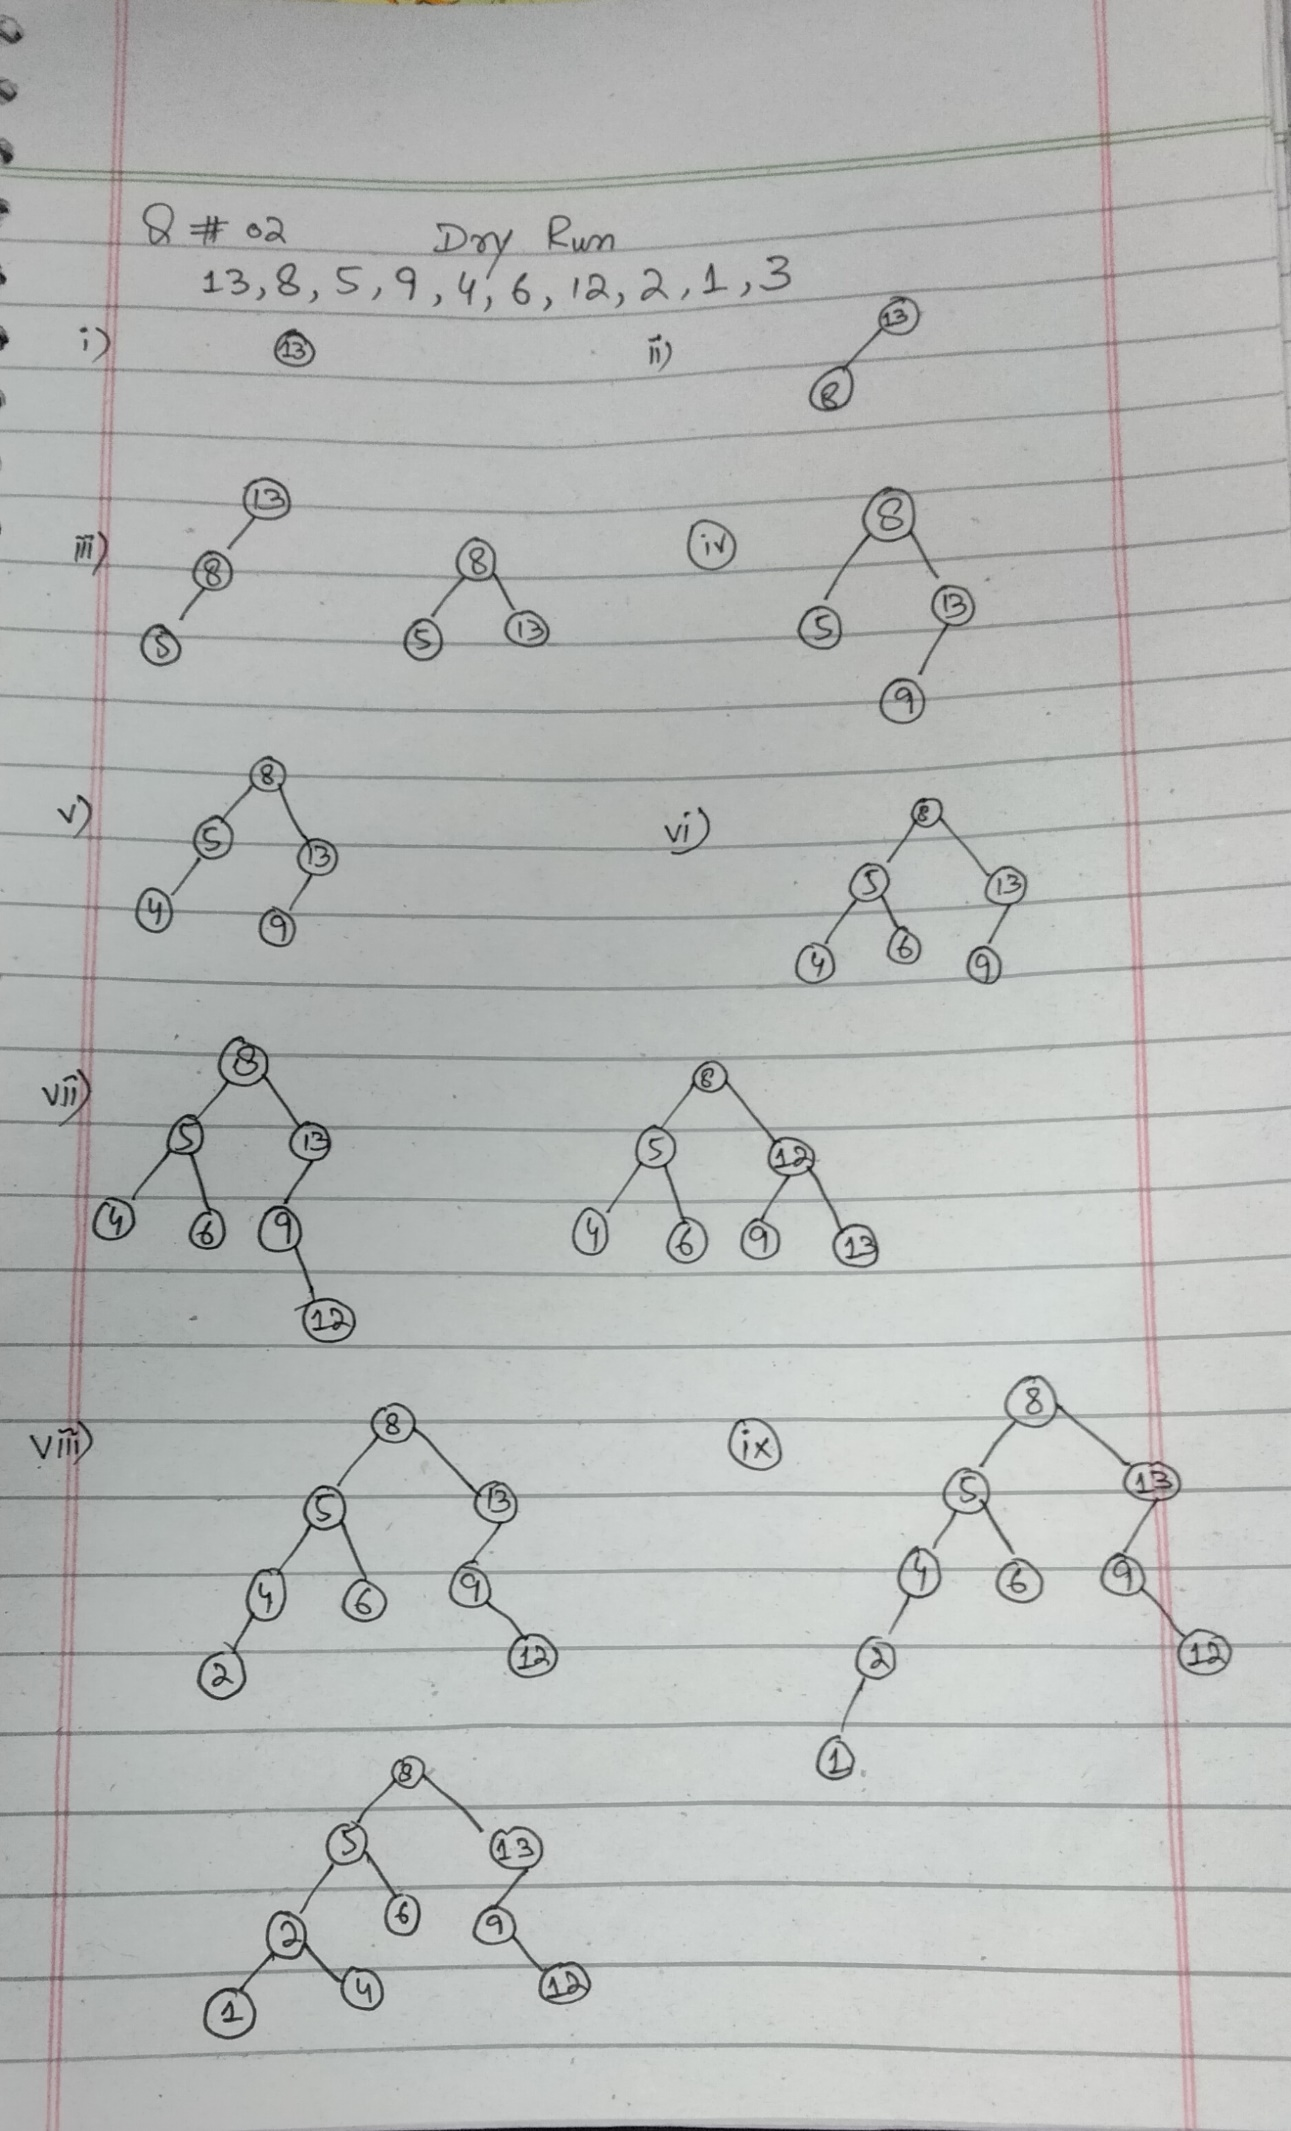 Q # 02 Dry Run
13, 8, 5, 9, 4, 6, 12, 2, 1, 3
i) 13 ii) 13
8
iii) 13
8
5
8
5 13
iv 8
5 13
9
v) 8
5 13
4 9
vi) 8
5 13
4 6 9
vii) 8
5 13
4 6 9
12
8
5 12
4 6 9 13
viii) 8
5 13
4 6 9
2 12
ix 8
5 13
4 6 9
2 12
1
8
5 13
2 6 9
1 4 12